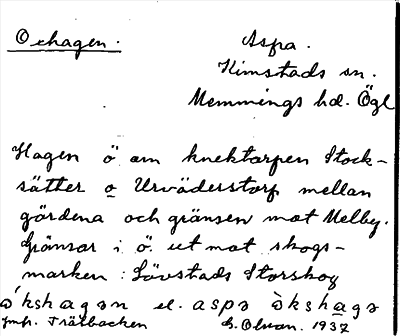 Oxhagen.
Aspa.
Kimstads sn.
Memmings hd. Ögl
Hagen ö om knektorpen Stock-
sätter o Urväderstorp mellan
gärdena och gränsen mot Melby.
Gränsar i ö. ut mot skogs-
marken : Lövstads Storskog
òkshagən el. aspə òkshagə
jmf. Trätbacken
G. Olson. 1937